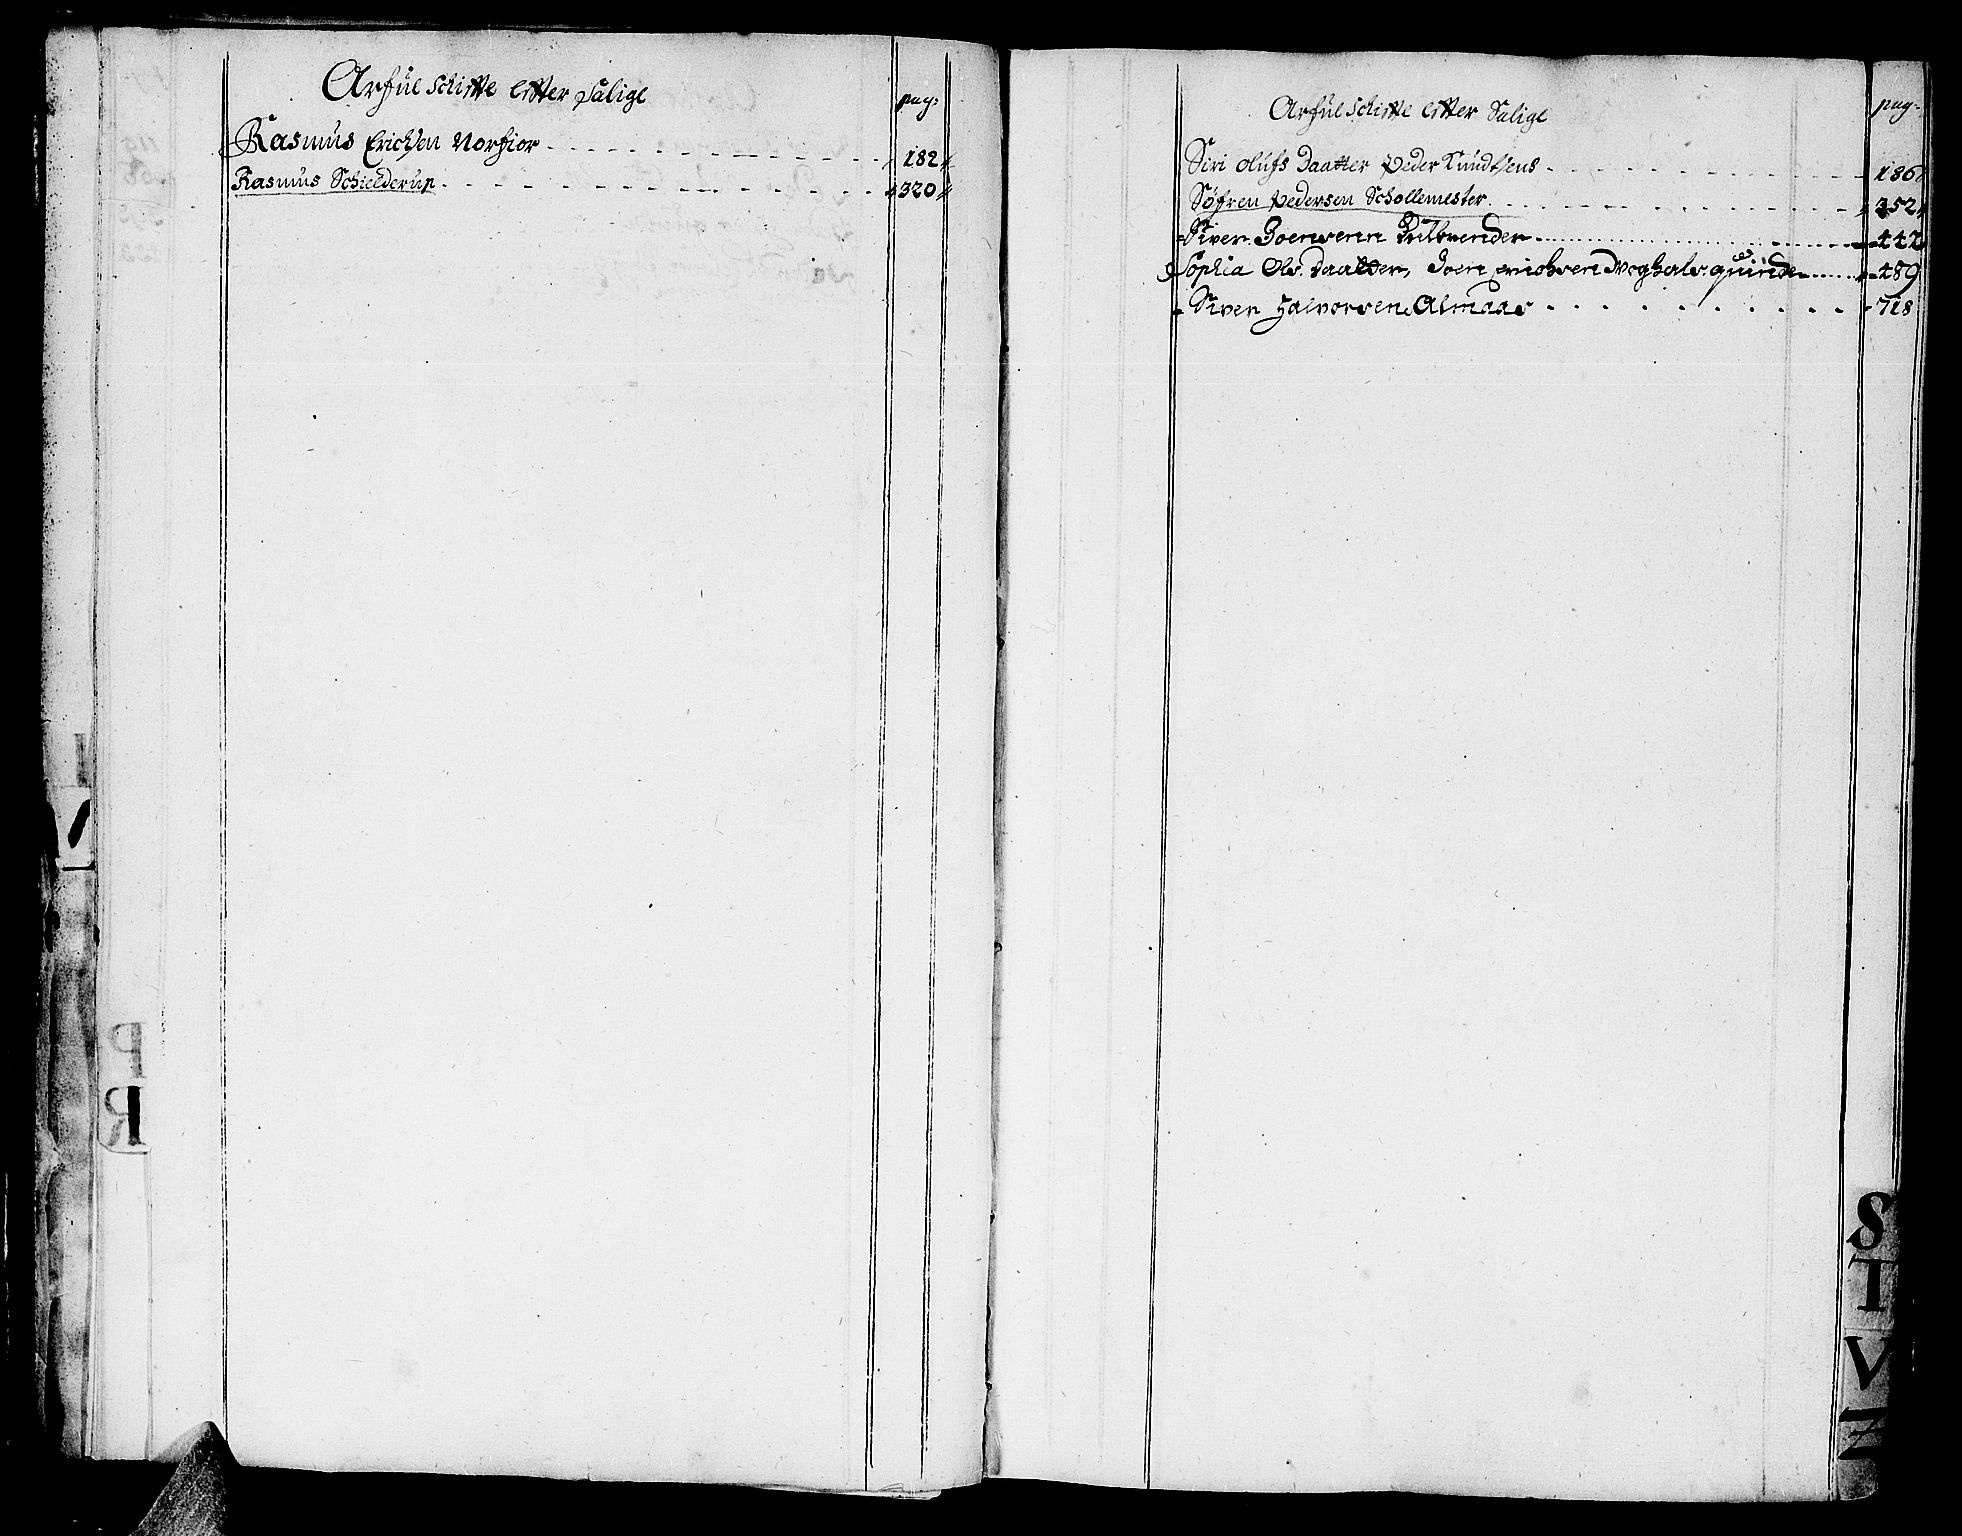 Arfuel Schifte Effter Salige
pag:
Rasmus Erichsen Norfior - - - 182
Rasmus Schielderup - - - 320
Arfuel Schifte Effter Salige
pag:
Siri Olufs Daatter Peder Knudtsens - - - 186
Søfren Pedersen Schollemester - - - 352
Siver Joensenn - - - 442
Sophia Ols: Daatter, Joen erichsen quinde - - - 489
Siver Halvorsen Almaas - - - 718
P
R
S
T
V
Z